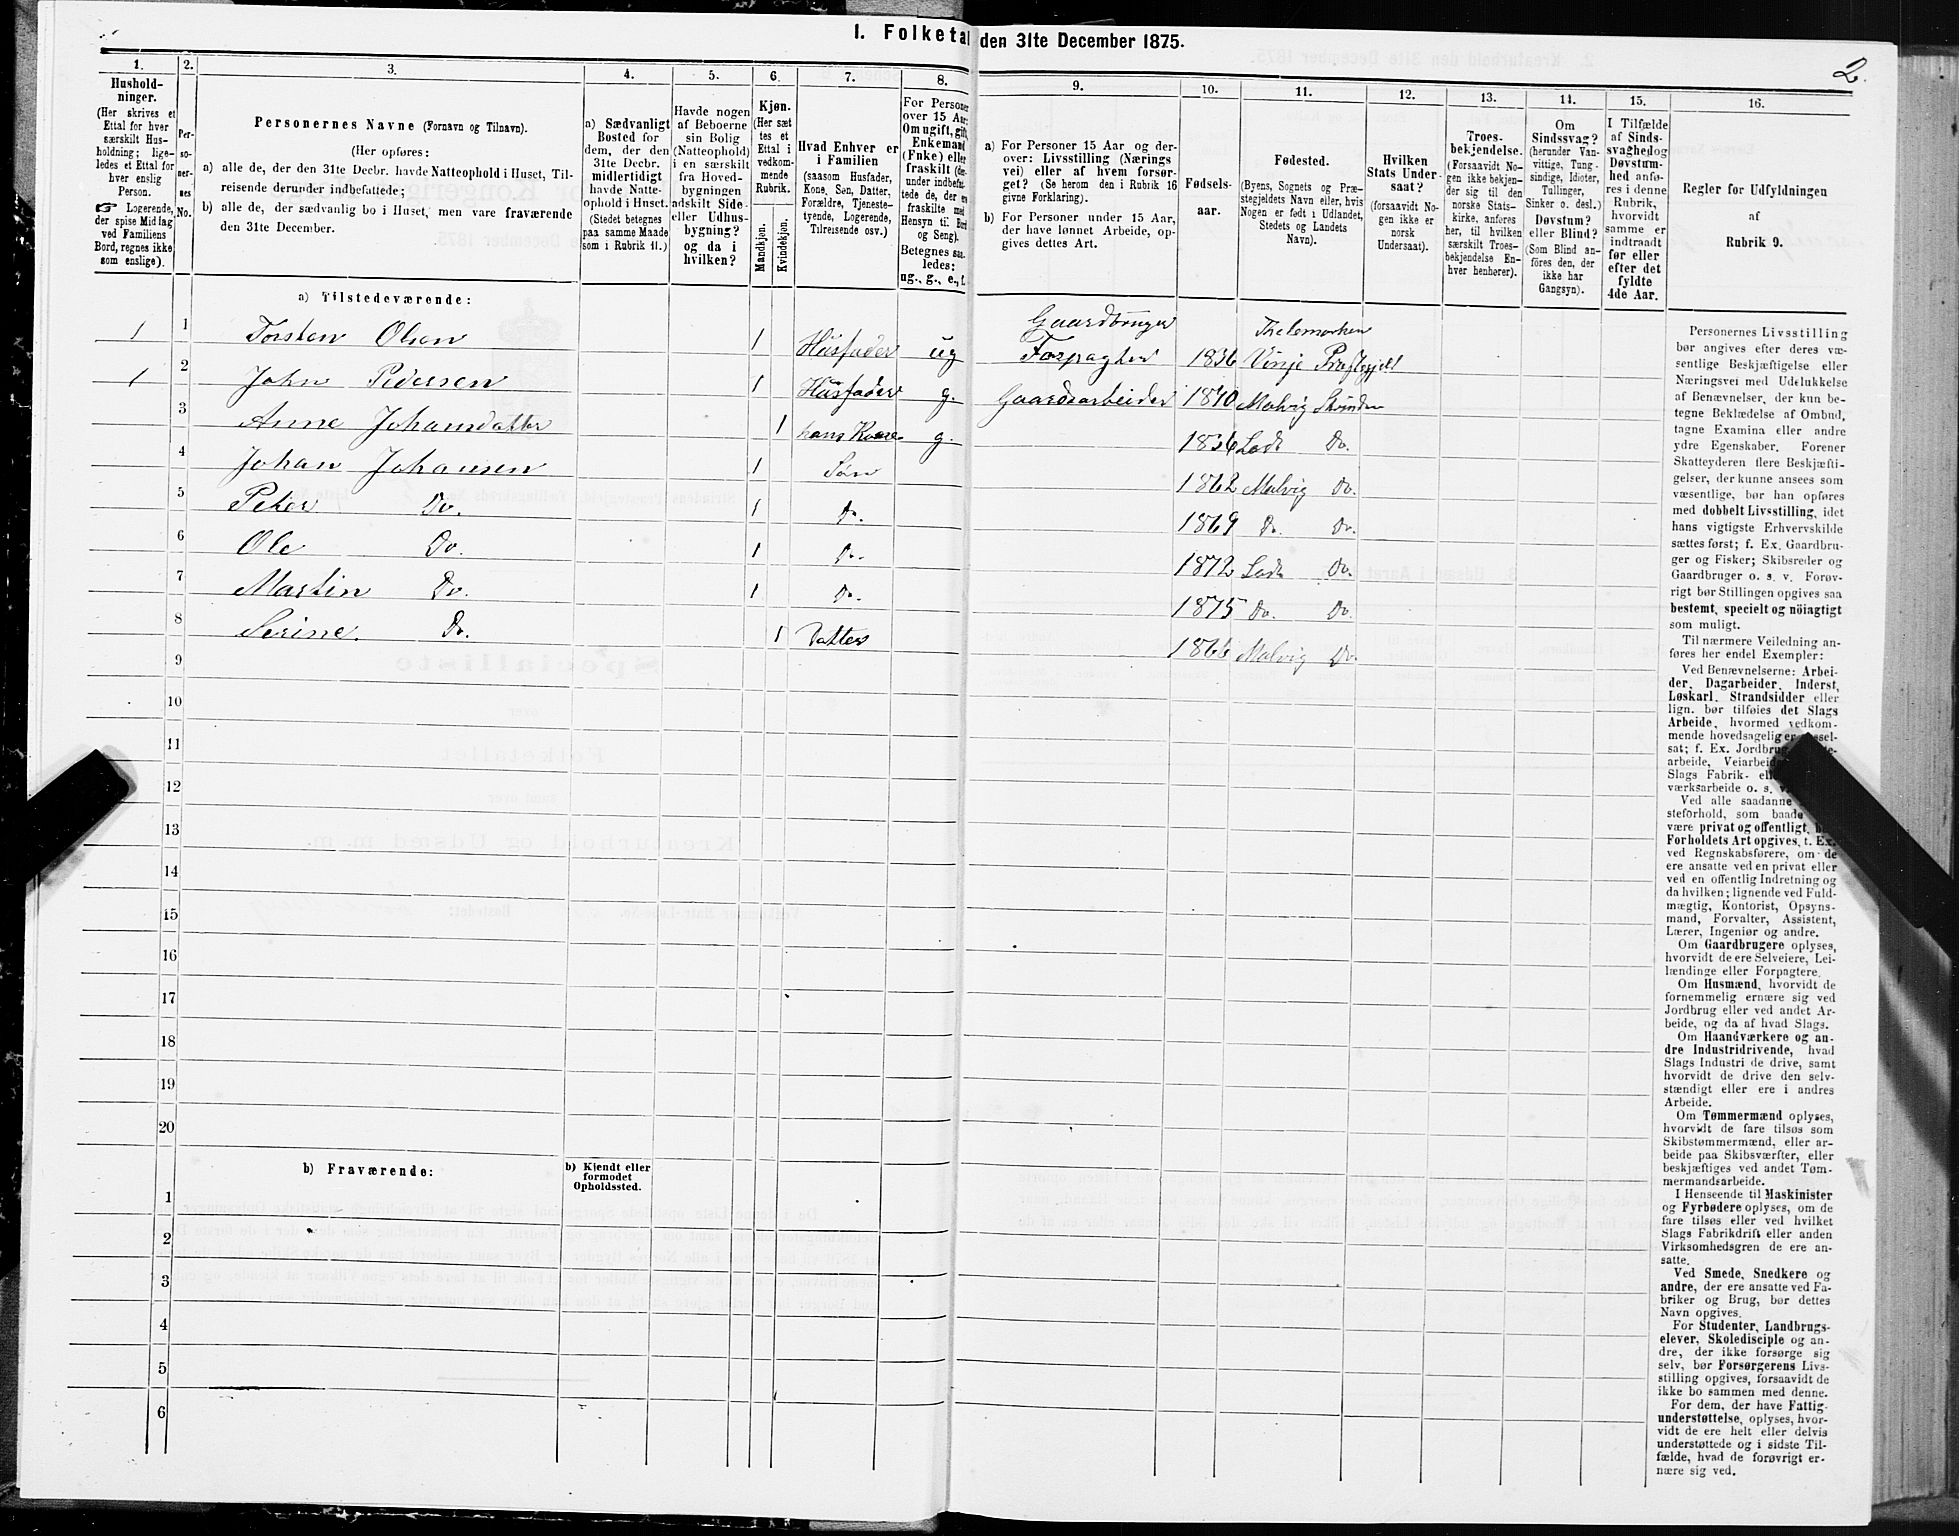 I. Folketal den 31te December 1875.
2.
1. 2. 3. 4. 5. 6. 7. 8. 9. 10. 11. 12. 13. 14. 15. 16.
Hushold-
ninger.
(Her skrives et
Ettal for hver
særskilt Hus-
holdning; lige-
ledes et Ettal for
hver enslig
Person.
☞ Logerende,
der spise Middag
ved Familiens
Bord, regnes ikke
som enslige).
Per-
so-
ner-
nes
No.
Personernes Navne (Fornavn og Tilnavn).
(Her opføres:
a) alle de, der den 31te Decbr. havde Natteophold i Huset, Til-
reisende derunder indbefattede;
b) alle de, der sædvanlig bo i Huset, men vare fraværende
den 31te December.
a) Sædvanligt
Bosted for
dem, der den
31te Decbr.
midlertidigt
havde Natte-
ophold i Huset.
(Stedet betegnes
paa samme Maade
som i Rubrik 11.)
Havde nogen
af Beboerne
sin Bolig
(Natteophold)
i en særskilt
fra Hoved-
bygningen
adskilt Side-
eller Udhus-
bygning?
og da i
hvilken?
Kjøn.
(Her sæt-
tes et
Ettal i
vedkom-
mende
Rubrik.
Mandkjøn.
Kvindekjøn.
Hvad Enhver er
i Familien
(saasom Husfader,
Kone, Søn, Datter,
Forældre, Tjeneste-
tyende, Logerende,
Tilreisende osv.)
For Personer
over 15 Aar:
Om ugift, gift,
Enkemand
(Enke) eller
fraskilt (der-
under indbefat-
tede de, der ere
fraskilte med
Hensyn til Bord
og Seng).
Betegnes saa-
ledes:
ug., g., e., f.
a) For Personer 15 Aar og der-
over: Livsstilling (Nærings-
vei) eller af hvem forsør-
get? (Se herom den i Rubrik 16
givne Forklaring).
b) For Personer under 15 Aar,
der have lønnet Arbeide, op-
gives dettes Art.
Fødsels-
aar.
Fødested.
(Byens, Sognets og Præ-
stegjeldets Navn eller, hvis
Nogen er født i Udlandet,
Stedets og Landets
Navn).
Hvilken
Stats Under-
saat?
(forsaavidt No-
gen ikke er
norsk
Undersaat).
Troes-
bekjendelse.
(Forsaavidt No-
gen ikke bekjen-
der sig til den
norske Stats-
kirke, anføres
her, til hvilken
særskilt Troes-
bekjendelse En-
hver henhører).
Om
Sindssvag?
(herunder Van-
vittige, Tung-
sindige, Idioter,
Tullinger,
Sinker o. desl.)
Døvstum?
eller Blind?
(Som Blind an-
føres den, der
ikke har
Gangsyn).
I Tilfælde
af Sinds-
svaghed og
Døvstum-
hed anfø-
res i denne
Rubrik,
hvorvidt
samme er
indtraadt
før eller
efter det
fyldte
4de Aar.
Regler for Udfyldningen
af
Rubrik 9.
a) Tilstedeværende:
1 1 Torsten Olsen 1 Husfader ug Gaardbruger Forpagter 1836 Thelemarken Vinje Præstegjeld
1 2 John Pedersen 1 Husfader g. Gaardsarbeider 1840 Malvig Strinden
3 Anne Johansdatter 1 hans Kone g. 1836 Lade Do.
4 Johan Johansen 1 Søn 1862 Malvig Do.
5 Peter Do. 1 Do. 1869 Do. Do.
6 Ole Do. 1 Do. 1872 Lade Do.
7 Martin Do. 1 Do. 1875 Do. Do.
8 Serine Do. 1 Datter 1866 Malvig Do.
9
10
11
12
13
14
15
16
17
18
19
20
b) Fraværende:
b) Kjendt eller
formodet
Opholdssted.
1
2
3
4
5
6
Personernes Livsstilling
bør angives efter deres væ-
sentlige Beskjæftigelse eller
Næringsvei med Udelukkelse
af Benævnelser, der kun be-
tegne Beklædelse af Ombud,
tagne Examina eller andre
ydre Egenskaber. Forener
Skatteyderen flere Beskjæfti-
gelser, der kunne ansees som
væsentlige, bør han opføres
med dobbelt Livsstilling, idet
hans vigtigste Erhvervskilde
sættes først; f. Ex. Gaardbru-
ger og Fisker; Skibsreder og
Gaardbruger o. s. v. Forøv-
rigt bør Stillingen opgives saa
bestemt, specielt og nöiagtigt
som muligt.
Til nærmere Veiledning an-
føres her endel Exempler:
Ved Benævnelserne: Arbei-
der, Dagarbeider, Inderst,
Løskarl, Strandsidder eller
lign. bør tilføies det Slags
Arbeide, hvormed vedkom-
mende hovedsagelig er
sat; f. Ex. Jordbrug,
arbeide, Veiarbeide,
Slags Fabrik-
værksarbeide o. s. v.
Ved alle saadanne
steforhold, som baade
være privat og offentligt,
Forholdets Art opgives, t. Ex.
ved Regnskabsførere, om de
ere ansatte ved en privat eller
ved en offentlig Indretning og
da hvilken; lignende ved Fuld-
mægtig, Kontorist, Opsyns-
mand, Forvalter, Assistent,
Lærer, Ingeniør og andre.
Om Gaardbrugere oplyses,
hvorvidt de ere Selveiere, Lei-
lændinge eller Forpagtere.
Om Husmænd, hvorvidt de
fornemmelig ernære sig ved
Jordbrug eller ved andet Ar-
beide, og da af hvad Slags.
Om Haandværkere og an-
dre Industridrivende, hvad
Slags Industri de drive, samt
hvorvidt de drive den selv-
stændigt eller ere i andres
Arbeide.
Om Tømmermænd oplyses,
hvorvidt de fare tilsøs som
Skibstømmermænd, eller ar-
beide paa Skibsværfter, eller
beskjæftiges ved andet Tøm-
mermandsarbeide.
I Henseende til Maskinister
og Fyrbødere oplyses, om de
fare tilsøs eller ved hvilket
Slags Fabrikdrift eller anden
Virksomhedsgren de ere an-
satte.
Ved Smede, Snedkere og
andre, der ere ansatte ved Fa-
briker og Brug, bør dettes
Navn opgives.
For Studenter, Landbrugs-
elever, Skoledisciple og an-
dre, der ikke forsørge sig
selv, bør Forsørgerens Livs-
stilling opgives, forsaavidt de
ikke bo sammen med denne.
For dem, der have Fattig-
understøttelse, oplyses, hvor-
vidt de ere helt eller delvis
understøttede og i sidste Til-
fælde, hvad de forøvrigt er-
nære sig ved.